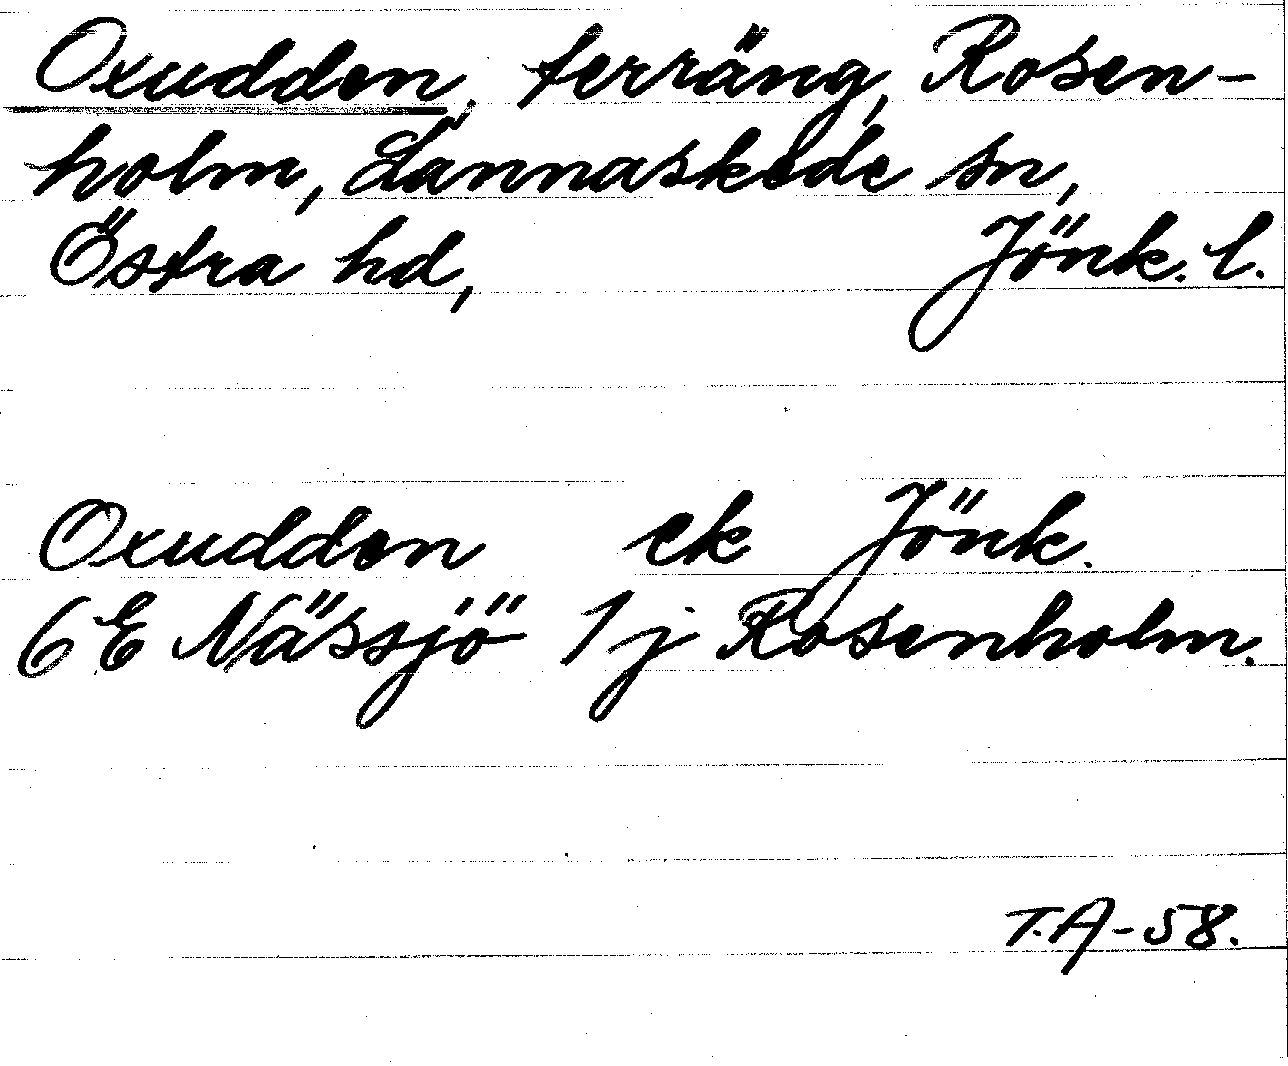 Oxudden, terräng, Rosen-
holm, Lannaskede sn,
Östra hd, Jönk. l.
Oxudden ek Jönk.
6E Nässjö 1j Rosenholm.
T.A-58.